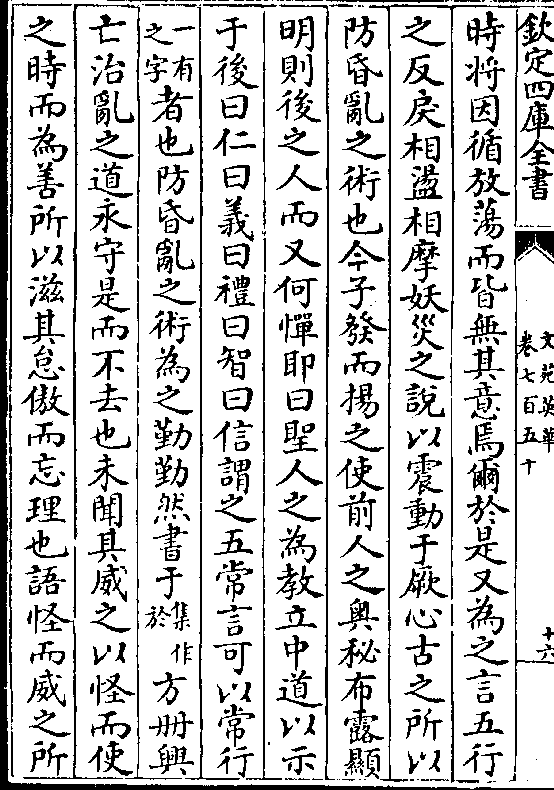 欽定四庫全書
文苑英華
卷七百五十
十六
時将因循放蕩而皆無其意焉爾於是又為之言五行
之反戾相盪相摩妖災之說以震動于厥心古之所以
防昏亂之術也今子發而揚之使前人之奥秘布露顯
明則後之人而又何憚耶曰聖人之為教立中道以示
于後曰仁曰義曰禮曰智曰信謂之五常言可以常行
一有之字者也防昏亂之術為之勤勤然書于集作於方冊興
亡治亂之道永守是而不去也未聞其威之以怪而使
之時而為善所以滋其怠傲而忘理也語怪而威之所